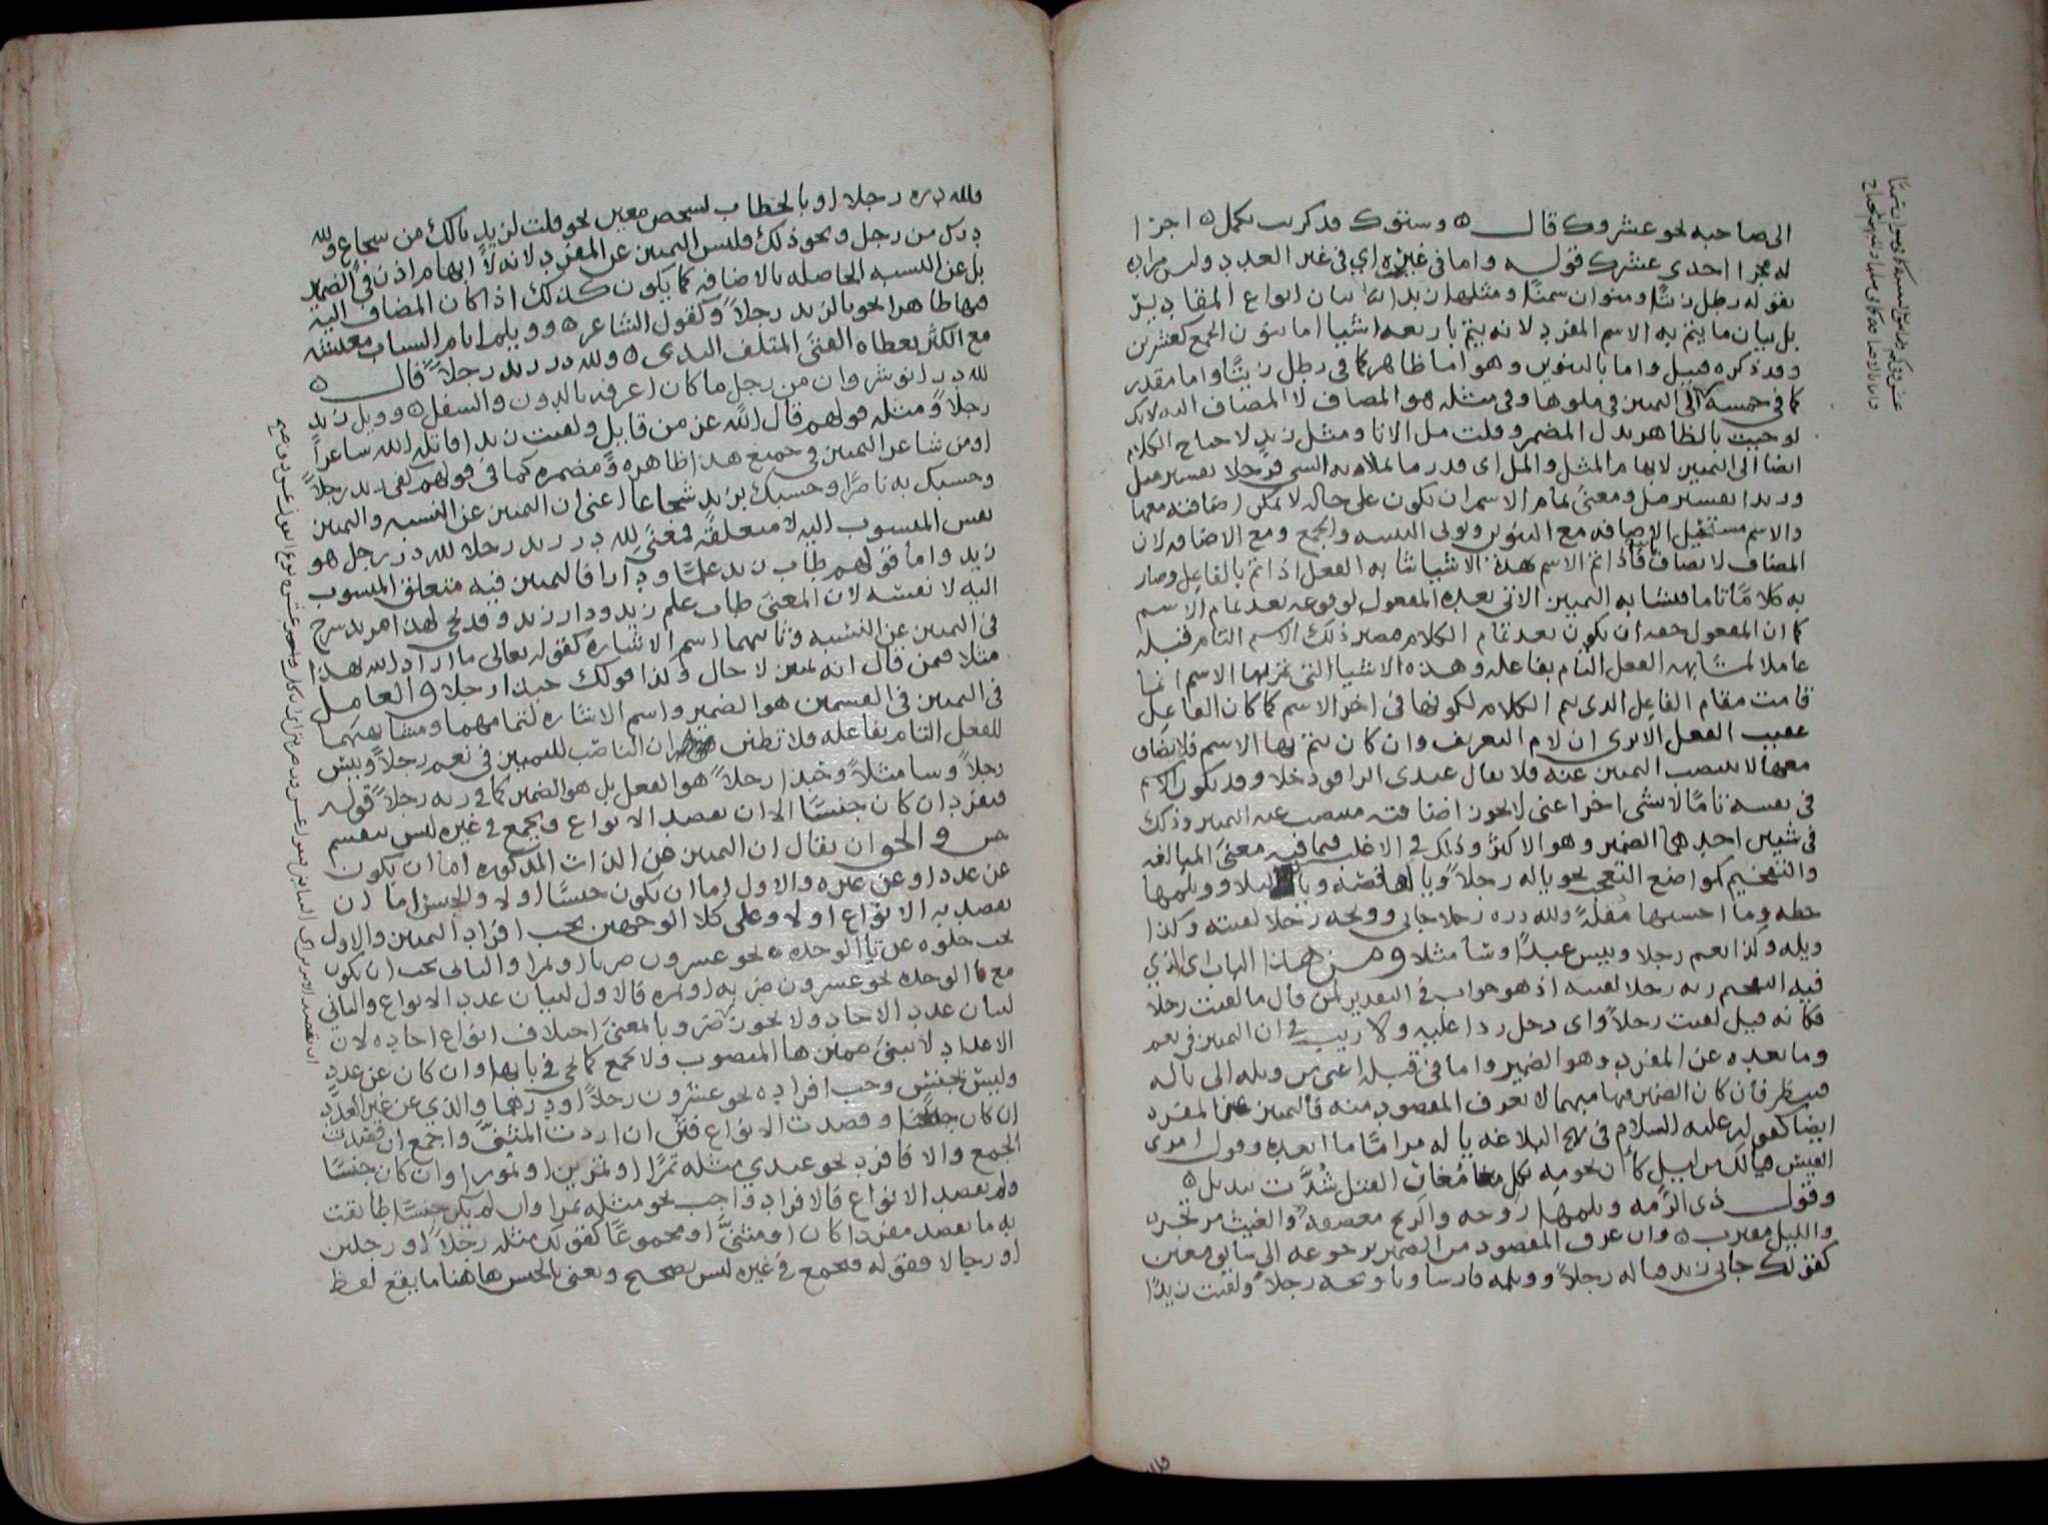 الى صاحبه نحو عشروك قال وستوك قد كربت تكمل اجزا
له عجزا احدى عشرك قوله واما في غيره اي في غير العدد وليس مراده
بقوله رطل زيتا ومنوان سمنا ومثلها زبدا بيان انواع المقادير
بل بيان ما يتم به الاسم المفرد لانه يتم باربعه اشيا اما بنون الجمع كعشرين
وقد ذكره قبيل واما بالتنوين وهو اما ظاهر كما في رطل زيتا واما مقدر
كما في خمسة الى التمييز في ملوها وفي مثله هو المضاف لا المضاف اليه لانك
لو جيت بالظاهر بدل المضمر وقلت مل الانا ومثل زيد لاحتاج الكلام
ايضا الى التمييز لابهام المثل والمل اى قدر ما يملا به الشي فرجلا تفسير مثل
وزبدا تفسير مثل ومعنى تمام الاسم ان يكون على حاله لا يمكن اضافته معها
والاسم مستحيل الاضافه مع التنوين ونوني التثنيه والجمع ومع الاضافه لان
المضاف لا يضاف فاذا تم الاسم بهذه الاشيا شابه الفعل اذا تم بالفاعل وصار
به كلاما تاما فشابه التمييز الاتي بعده المفعول لوقوعه بعد تمام الاسم
كما ان المفعول حقه ان يكون بعد تمام الكلام فيصير ذلك الاسم التام قبله
عاملا لمشابهه الفعل التام بفاعله وهذه الاشيا التي تم بها الاسم انما
قامت مقام الفاعل الذي يتم الكلام لكونها في اخر الاسم كما كان الفاعل
عقيب الفعل الا ترى ان لام التعريف وان كان يتم بها الاسم فلا يضاف
معها لا ينتصب التمييز عنه فلا يقال عندى الراقود خلا وقد يكون الاسم
في نفسه تاما لا بشي اخر اعني لا يجوز اضافته فينتصب عنه التمييز وذلك
في شيين احدهما الضمير وهو الاكثر وذلك في الاغلب فيما فيه معنى المبالغه
والتفخيم كمواضع التعجب نحو ياله رجلا ويالها قصه ويا ليلا وويلمها
خطه وما احسنها مقله ولله دره رجلا جاني وويحه رجلا لقيته وكذا
ويله وكذا نعم رجلا وبيس عبدا وسا مثلا ومن هذا الباب اي الذي
فيه التفخيم ربه رجلا لقيته اذ هو جواب في التقدير لمن قال ما لقيت رجلا
فكانه قيل لقيت رجلا واى رجل ردا عليه ولا ريب في ان التمييز في نعم
وما بعده عن المفرد وهو الضمير واما في قبله اعني من ويله الى ياله
فينظر فان كان الضمير فيها مبهما لا يعرف المقصود منه فالتمييز عن المفرد
ايضا كقوله عليه السلام في نهج البلاغه ياله مراما ما ابعده وقول امرئ
القيس فيالك من ليل كان نجومه بكل مغار الفتل شدت بيذبل
وقول ذي الرمه ويلمها روحه والريح معصفه والغيث مرتجز
والليل مقترب وان عرف المقصود من الضمير برجوعه الى سابق معين
كقولك جاني زيد فياله رجلا وويلمه فارسا ويا ويحه رجلا ولقيت زيدا
ولله دره رجلا او بالخطاب لشخص معين نحو قلت لزيد يالك من شجاع ولله
درك من رجل ونحو ذلك فليس التمييز عن المفرد لانه لا ابهام اذن في الضمير
بل عن النسبه الحاصله بالاضافه كما يكون كذلك اذا كان المضاف اليه
فيها ظاهرا نحو يا لزيد رجلا وكقول الشاعر وويلم ايام الشباب معيشه
مع الكثر يعطاه الفتى المتلف الندى ولله در زيد رجلا قال
لله در انوشروان من رجل ما كان اعرفه بالدون والسفل وويل زيد
رجلا ومثله قولهم قال الله عز من قايل ولقيت زيدا قاتله الله شاعرا
او من شاعر التمييز في جميع هذا ظاهره ومضمره كما في قولهم كفى زيد رجلا
وحسبك به ناصرا وحسبك بزيد شجاعا اعني ان التمييز عن النسبه والتمييز
نفس المنسوب اليه لا متعلقه فمعنى لله در زيد رجلا لله در رجل هو
زيد واما قولهم طاب زيد علما ودارا فالتمييز فيه متعلق المنسوب
اليه لا نفسه لان المعنى طاب علم زيد ودار زيد وقد يجي لهذا مزيد شرح
في التمييز عن النسبه وثانيهما اسم الاشاره كقوله تعالى ما اراد الله بهذا
مثلا فمن قال انه تمييز لا حال وكذا قولك حبذا رجلا والعامل
في التمييز في القسمين هو الضمير واسم الاشاره لتمامهما ومشابهتهما
للفعل التام بفاعله فلا تظنن ان الناصب للتمييز في نعم رجلا وبيس
رجلا وسا مثلا وحبذا رجلا هو الفعل بل هو الضمير كما في ربه رجلا قوله
فيفرد ان كان جنسا الا ان يقصد الانواع ويجمع في غيره ليس بتقسيم
والحق ان يقال ان التمييز عن الذات المذكوره اما ان يكون
عن عدد او عن غيره والاول اما ان يكون جنسا او لا والجنس اما ان
يقصد به الانواع او لا وعلى كلا الوجهين يجب افراد التمييز والاول
يجب خلوه عن تا الوحده نحو عشرون ضربا او تمرا والثاني يجب ان يكون
مع تا الوحده نحو عشرون ضربه او تمره فالاول لبيان عدد الانواع والثاني
لبيان عدد الاحاد ولا يجوز ضروبا لمعنى اختلاف انواع احاده لان
الاعداد لا يثنى مميزها المنصوب ولا يجمع كما يجي في بابها وان كان عن عدد
وليس بجنس وجب افراده نحو عشرون رجلا او درهما والذي عن غير العدد
ان كان جنسا وقصدت الانواع فثن ان اردت المثنى واجمع ان قصدت
الجمع والا فافرد نحو عندي مثله تمرا او تمرين او تمورا وان كان جنسا
ولم يقصد الانواع فالافراد واجب نحو مثله تمرا وان لم يكن جنسا طابقت
به ما تقصد مفردا كان او مثنى او مجموعا كقولك مثله رجلا او رجلين
او رجالا فقوله فيجمع في غيره ليس بصحيح ويعني بالجنس هاهنا ما يقع لفظ